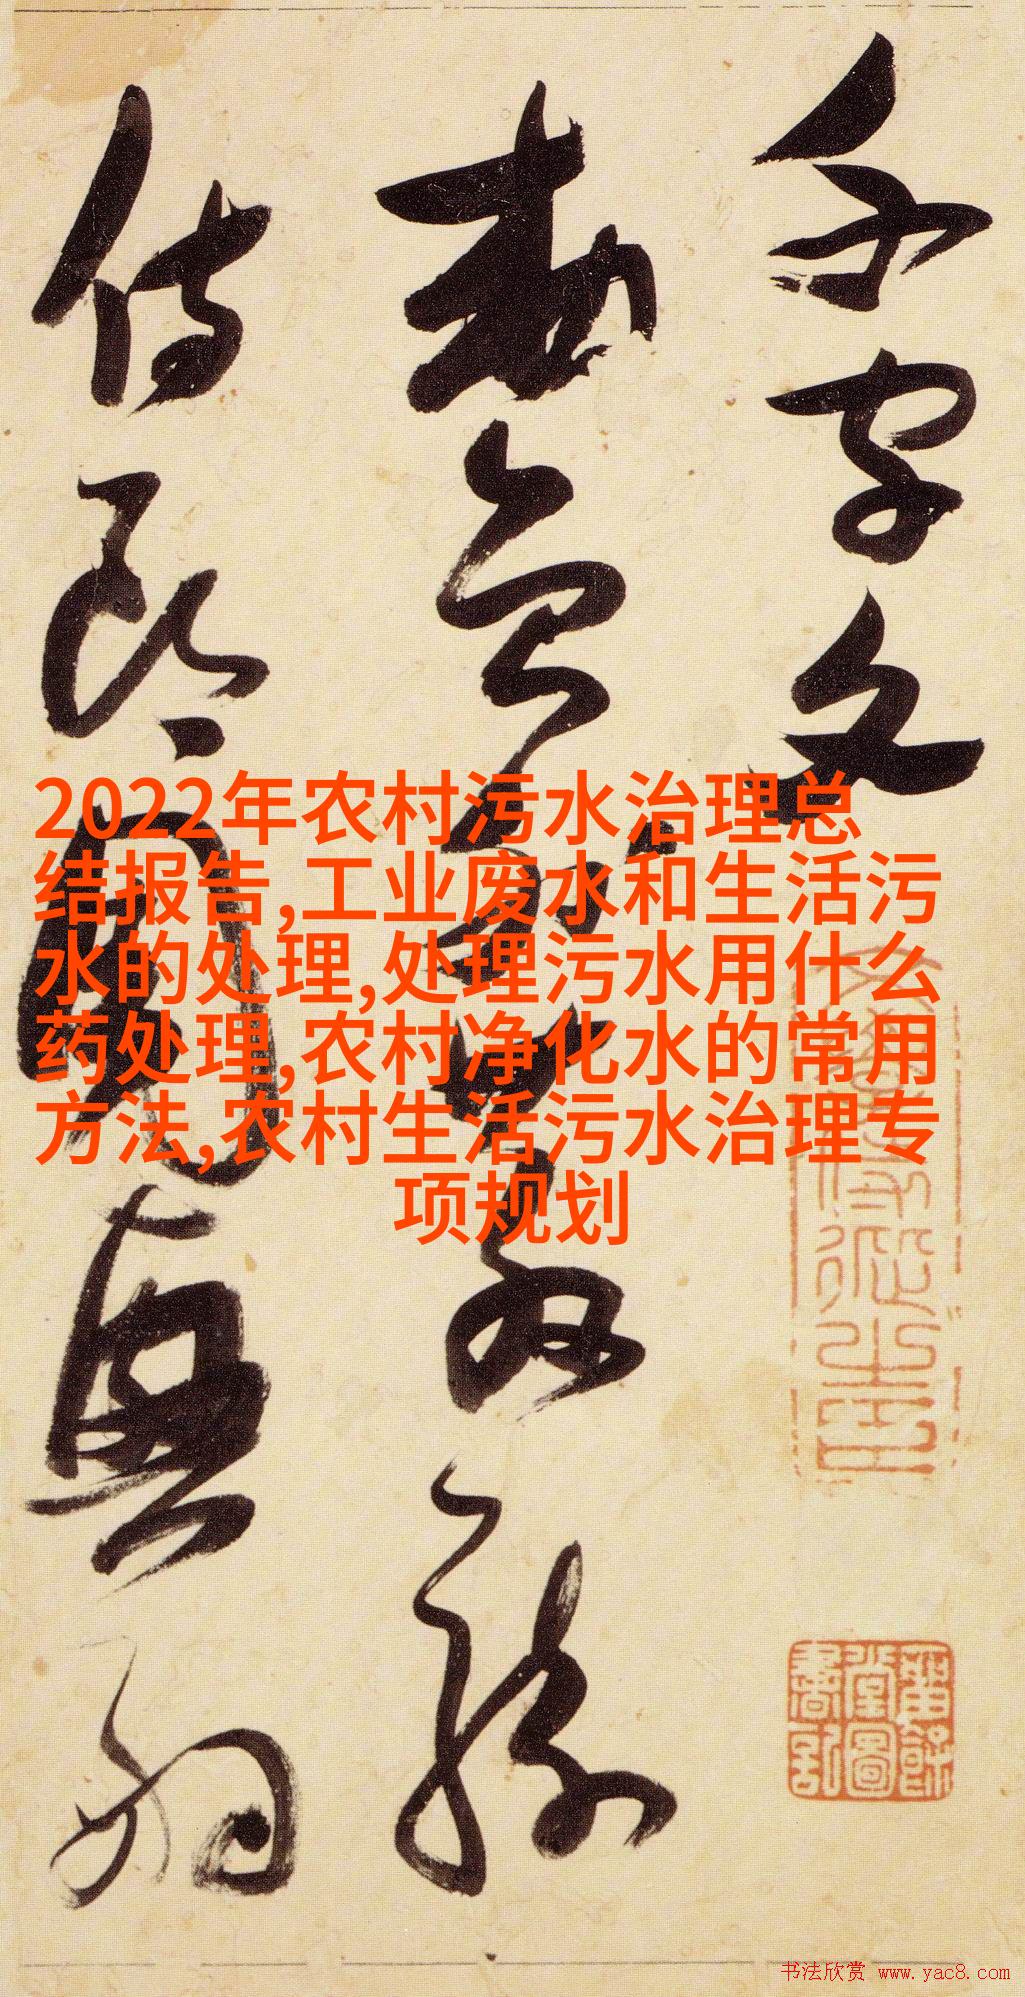 千字文
勅員
侍郎周興嗣
2022年农村污水治理总
结报告,工业废水和生活污
水的处理,处理污水用什么
药处理,农村净化水的常用
方法,农村生活污水治理专
项规划
书法欣赏 www.yac8.com